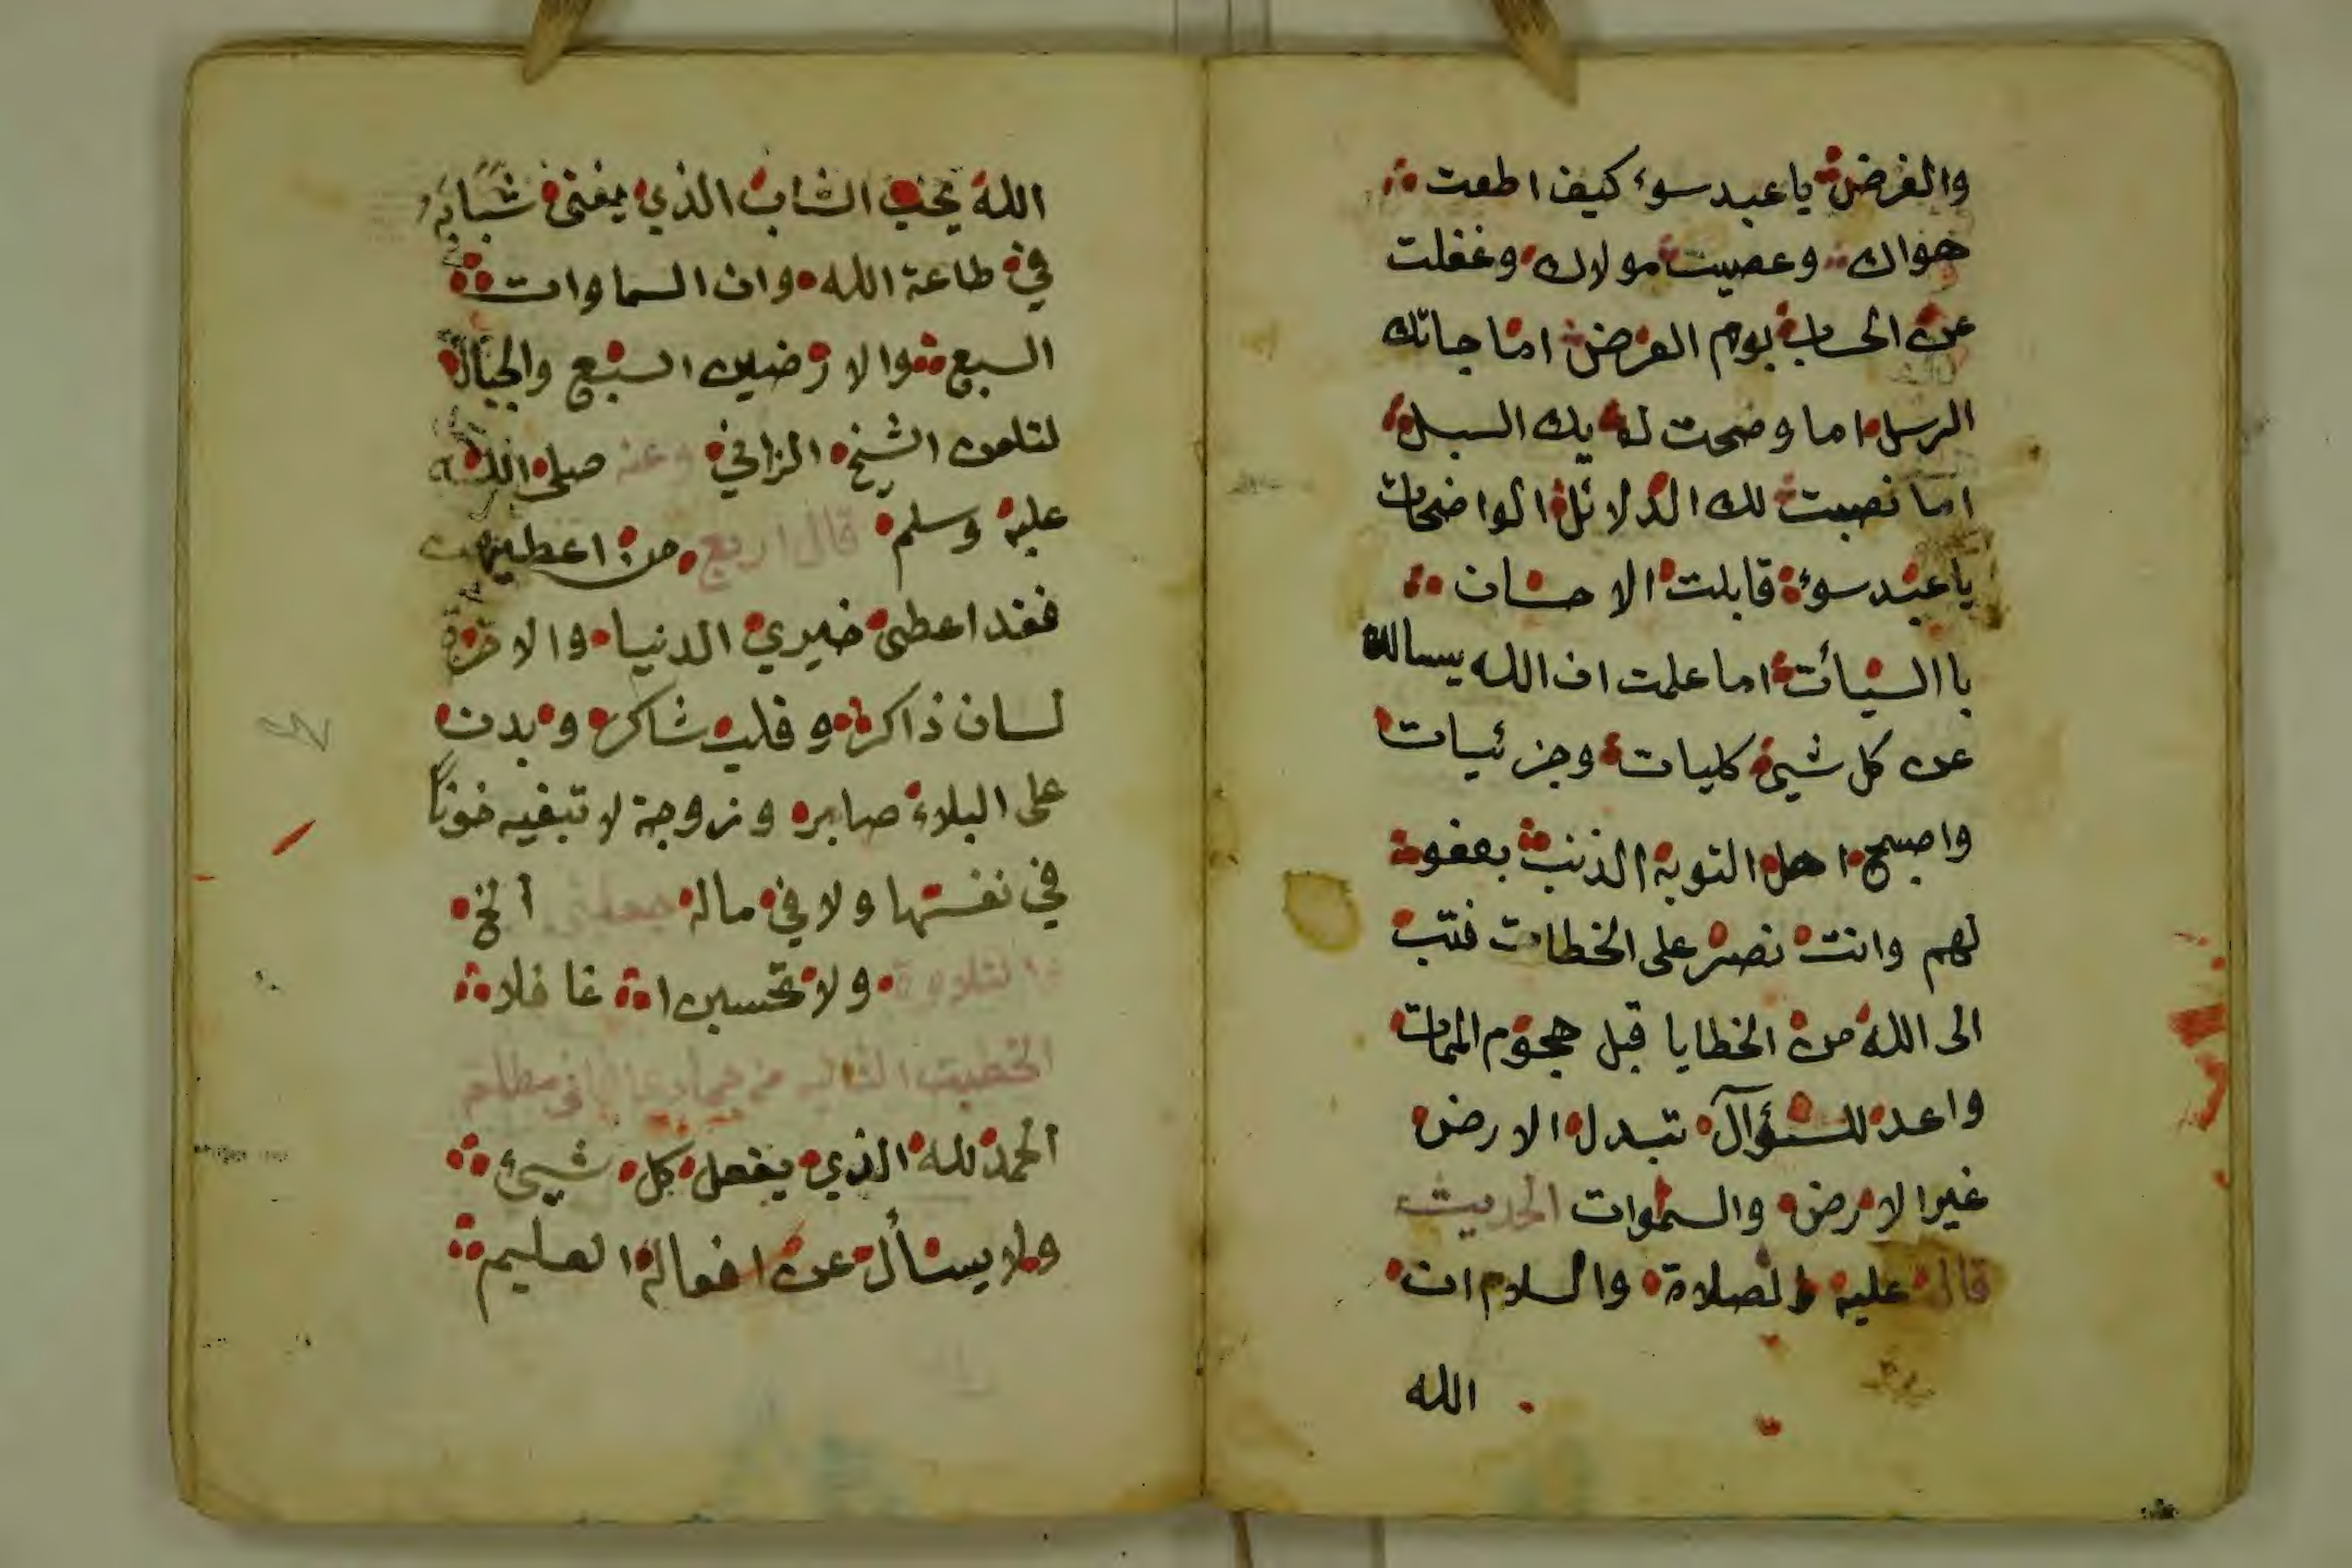 والفرض يا عبد سوء كيف اطعت
هواك وعصيت مولاك وغفلت
عن الحساب يوم العرض اما جاتك
الرسل اما وضحت لديك السبل
اما نصبت لك الدلائل الواضحات
يا عبد سوء قابلت الاحسان
با السيأت اما علمت ان الله يسالك
عن كل شيئ كليات وجزئيات
واصبح اهل التوبة الذنب بعفو
لهم وانت تصر على الخطات فتب
الى الله من الخطايا قبل هجوم الممات
واعد للسؤآل تبدل الارض
غير الارض والسموات الحديث
قال عليه الصلاة والسلام ان
الله
الله يحب الشاب الذي يفنى شبابه
في طاعة الله وان السماوات
السبع والارضين السبع والجبال
لتلعن الشيخ الزاني وعنه صلى الله
عليه وسلم قال اربع من اعطيهن
فقد اعطى خيري الدنيا والاخرة
لسان ذاكر وقلب شاكر وبدن
على البلاء صابر وزوجة لا تبغيه خونا
في نفسها ولا في ماله جعلني الخ
التلاوة ولا تحسبن الله غافلا
الخطبت الثانيه من جماد
الحمد لله الذي يفعل كل شيئ
ولا يسأل عن افعاله العليم